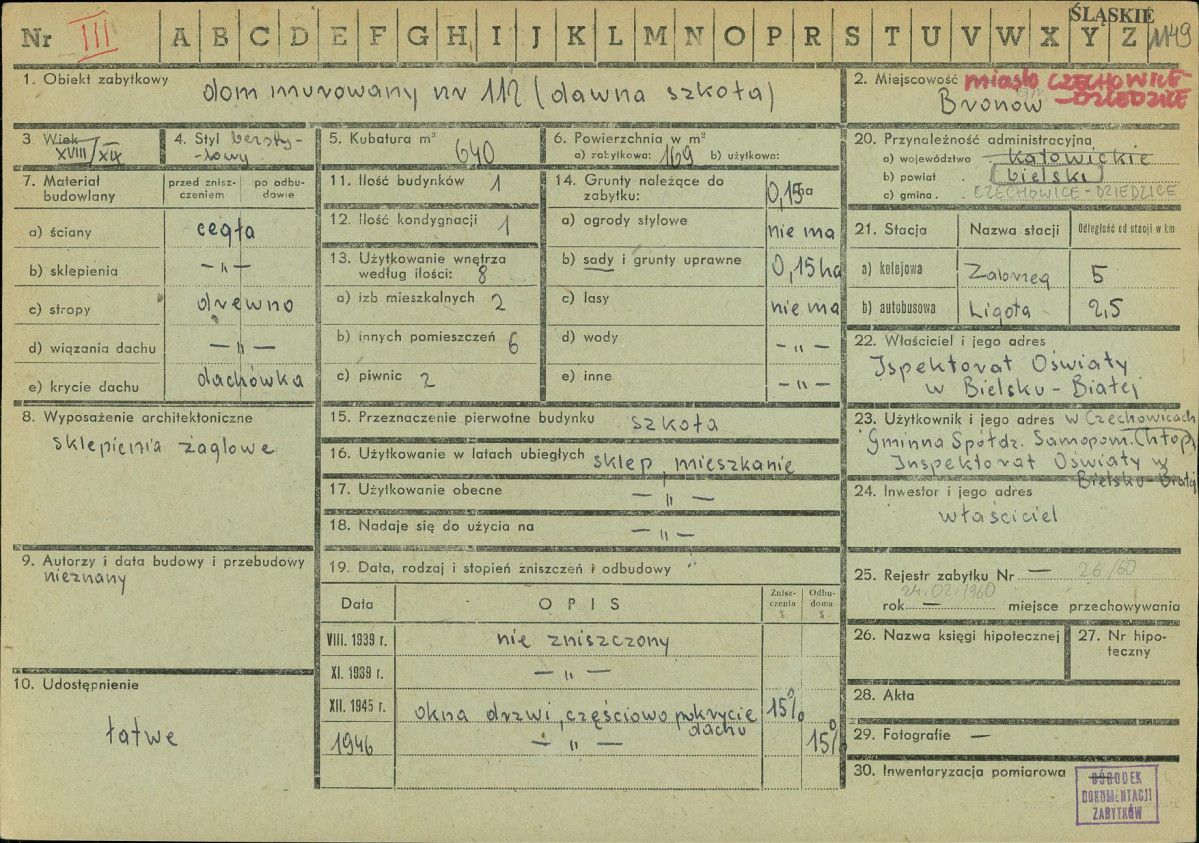 ŚLĄSKIE
Nr III A B C D E F G H I J K L M N O P R S T U V W X Y Z 1149
1. Obiekt zabytkowy
dom murowany nr 112 (dawna szkoła)
2. Miejscowość miasto CZECHOWICE-
Bronów -DZIEDZICE
3 Wiek
XVIII/XIX
4. Styl bezsty-
-lowy
5. Kubatura m³
640
6. Powierzchnia w m²
a) zabytkowa: 169 b) użytkowa:
7. Materiał
budowlany
przed znisz-
czeniem
po odbu-
dowie
a) ściany cegła
b) sklepienia — „ —
c) stropy drewno
d) wiązania dachu — „ —
e) krycie dachu dachówka
8. Wyposażenie architektoniczne
sklepienia żaglowe
9. Autorzy i data budowy i przebudowy
nieznany
10. Udostępnienie
łatwe
11. Ilość budynków 1
12. Ilość kondygnacji 1
13. Użytkowanie wnętrza
według ilości: 8
a) izb mieszkalnych 2
b) innych pomieszczeń 6
c) piwnic 2
14. Grunty należące do
zabytku: 0,15 ha
a) ogrody stylowe nie ma
b) sady i grunty uprawne 0,15 ha
c) lasy nie ma
d) wody — „ —
e) inne — „ —
15. Przeznaczenie pierwotne budynku szkoła
16. Użytkowanie w latach ubiegłych sklep, mieszkanie
17. Użytkowanie obecne — „ —
18. Nadaje się do użycia na — „ —
19. Data, rodzaj i stopień żniszczeń i odbudowy
Data OPIS
Znisz-
czenia
%
Odbu-
dowa
%
VIII. 1939 r. nie zniszczony
XI. 1939 r. — „ —
XII. 1945 r. okna drzwi, częściowo pokrycie 15%
dachu
1946 — „ — 15%
20. Przynależność administracyjna
a) województwo katowickie
b) powiat bielski
c) gmina CZECHOWICE-DZIEDZICE
21. Stacja Nazwa stacji Odległość od stacji w km
a) kolejowa Zabrzeg 5
b) autobusowa Ligota 2,5
22. Właściciel i jego adres
Ispektorat Oświaty
w Bielsku-Białej
23. Użytkownik i jego adres w Czechowicach
Gminna Spółdz. Samopom. Chłop.
Inspektorat Oświaty w
Bielsku-Białej
24. Inwestor i jego adres
właściciel
25. Rejestr zabytku Nr — 26/60
24.02.1960
rok — miejsce przechowywania
26. Nazwa księgi hipotecznej
27. Nr hipo-
teczny
28. Akta
29. Fotografie —
30. Inwentaryzacja pomiarowa
OŚRODEK
DOKUMENTACJI
ZABYTKÓW